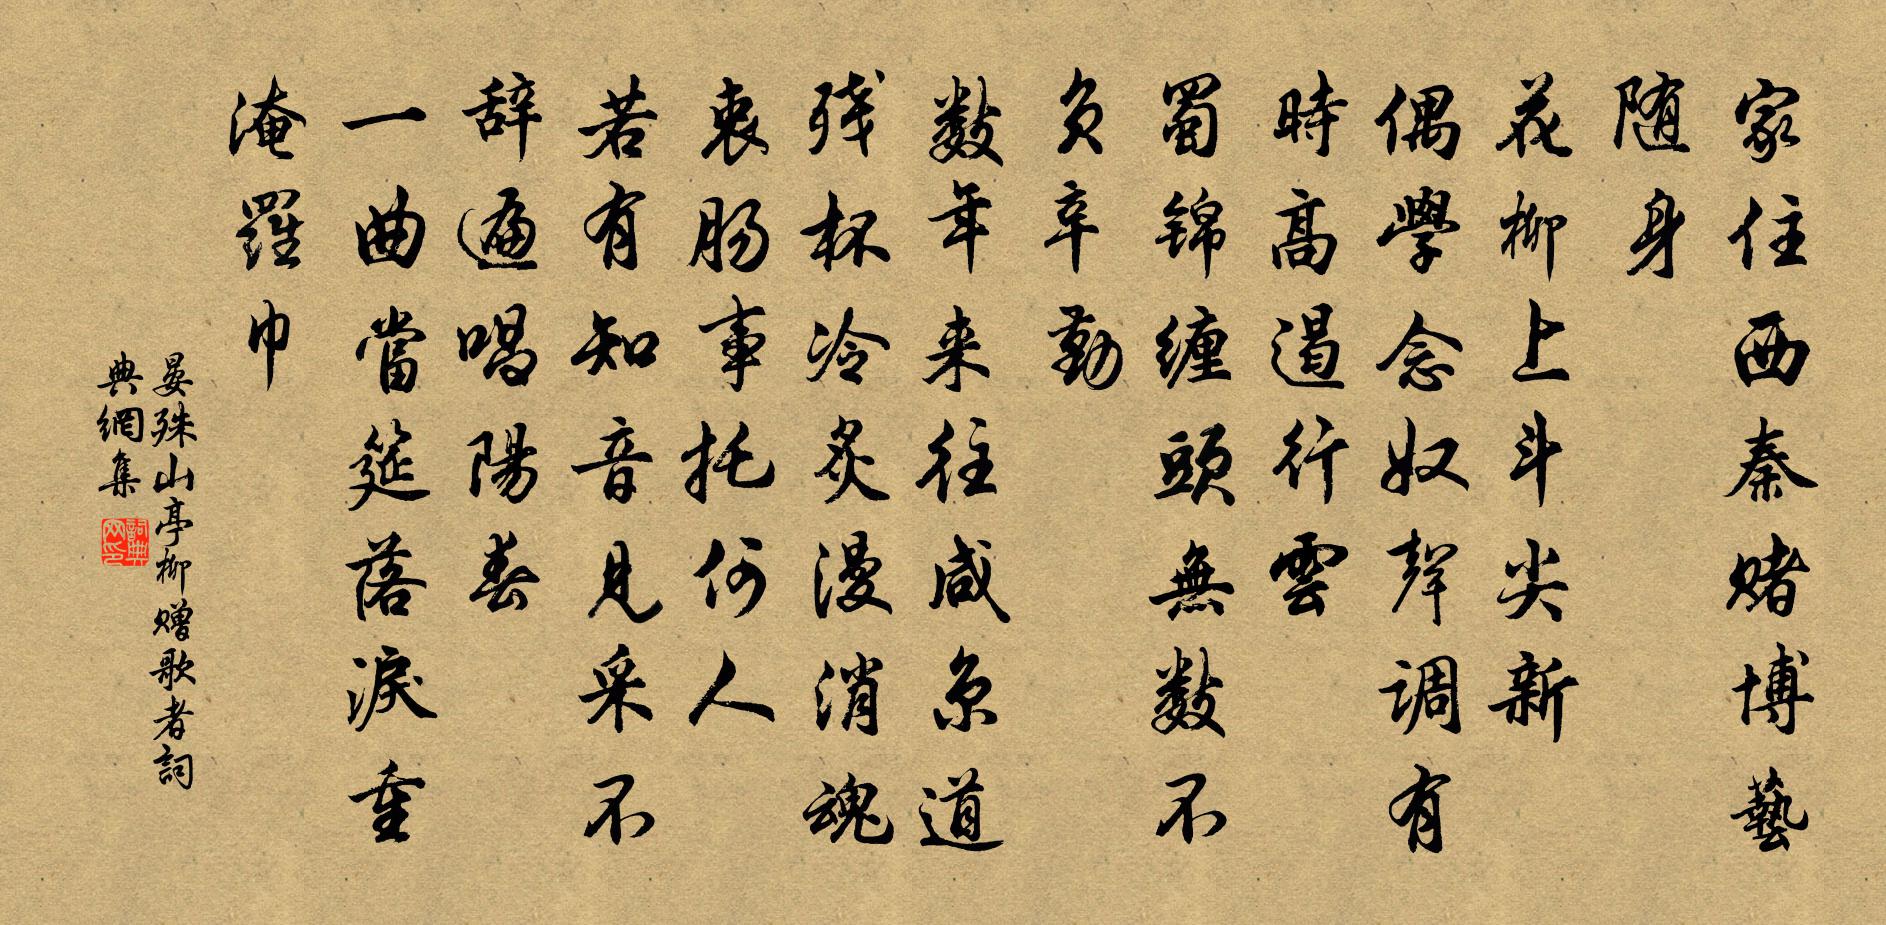 家住西秦赌博藝
随身
花柳上斗尖新
偶學念奴聲调有
時高遏行雲
蜀锦缠頭無数不
负辛勤
数年来往咸京道
残杯冷炙漫消魂
衷肠事托何人
若有知音見采不
辞遍唱陽春
一曲當筵落淚重
淹羅巾
晏殊山亭柳赠歌者詞
典網集
詞典
网印